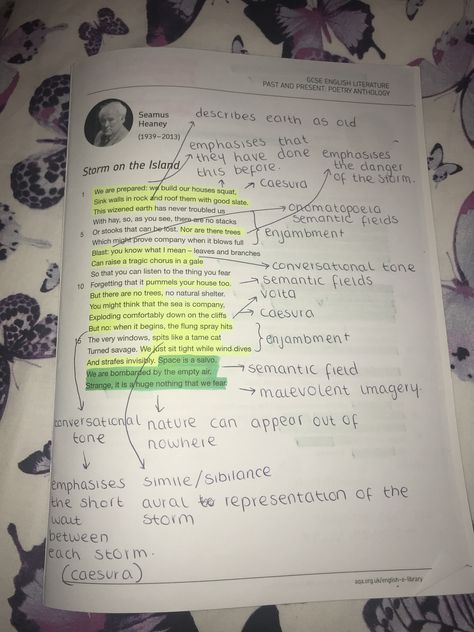 GCSE ENGLISH LITERATURE
PAST AND PRESENT: POETRY ANTHOLOGY
Seamus
Heaney
(1939–2013)
describes earth as old
emphasises that
they have done
this before.
emphasises
the danger
of the storm.
Storm on the Island
caesura
1 We are prepared: we build our houses squat,
Sink walls in rock and roof them with good slate.
This wizened earth has never troubled us
With hay, so, as you see, there are no stacks
5 Or stooks that can be lost. Nor are there trees
Which might prove company when it blows full
Blast: you know what I mean – leaves and branches
Can raise a tragic chorus in a gale
So that you can listen to the thing you fear
10 Forgetting that it pummels your house too.
But there are no trees, no natural shelter.
You might think that the sea is company,
Exploding comfortably down on the cliffs
But no: when it begins, the flung spray hits
15 The very windows, spits like a tame cat
Turned savage. We just sit tight while wind dives
And strafes invisibly. Space is a salvo.
We are bombarded by the empty air.
Strange, it is a huge nothing that we fear.
onomatopoeia
semantic fields
enjambment
conversational tone
semantic fields
volta
caesura
enjambment
semantic field
malevolent imagery.
conversational
tone
nature can appear out of
nowhere
emphasises
the short
wait
between
each storm.
(caesura)
simile/sibilance
aural representation of the
storm
aqa.org.uk/english-e-library